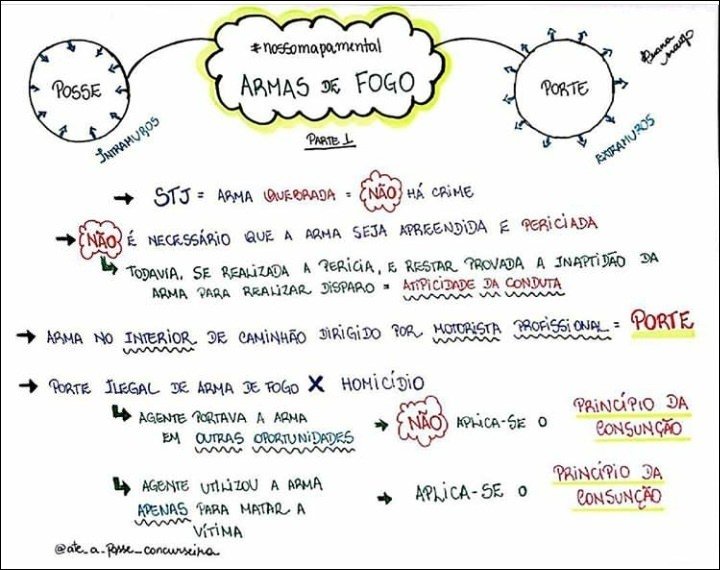 #nossomapamental
ARMAS DE FOGO
PARTE 1
POSSE
INTRAMUROS
PORTE
EXTRAMUROS
→ STJ = ARMA QUEBRADA = NÃO HÁ CRIME
→ NÃO É NECESSÁRIO QUE A ARMA SEJA APREENDIDA E PERICIADA
↳ TODAVIA, SE REALIZADA A PERÍCIA, E RESTAR PROVADA A INAPTIDÃO DA
ARMA PARA REALIZAR DISPARO = ATIPICIDADE DA CONDUTA
→ ARMA NO INTERIOR DE CAMINHÃO DIRIGIDO POR MOTORISTA PROFISSIONAL = PORTE
→ PORTE ILEGAL DE ARMA DE FOGO X HOMICÍDIO
↳ AGENTE PORTAVA A ARMA
EM OUTRAS OPORTUNIDADES → NÃO APLICA-SE O PRINCÍPIO DA
CONSUNÇÃO
↳ AGENTE UTILIZOU A ARMA
APENAS PARA MATAR A
VÍTIMA → APLICA-SE O PRINCÍPIO DA
CONSUNÇÃO
@ate_a_posse_concurseira